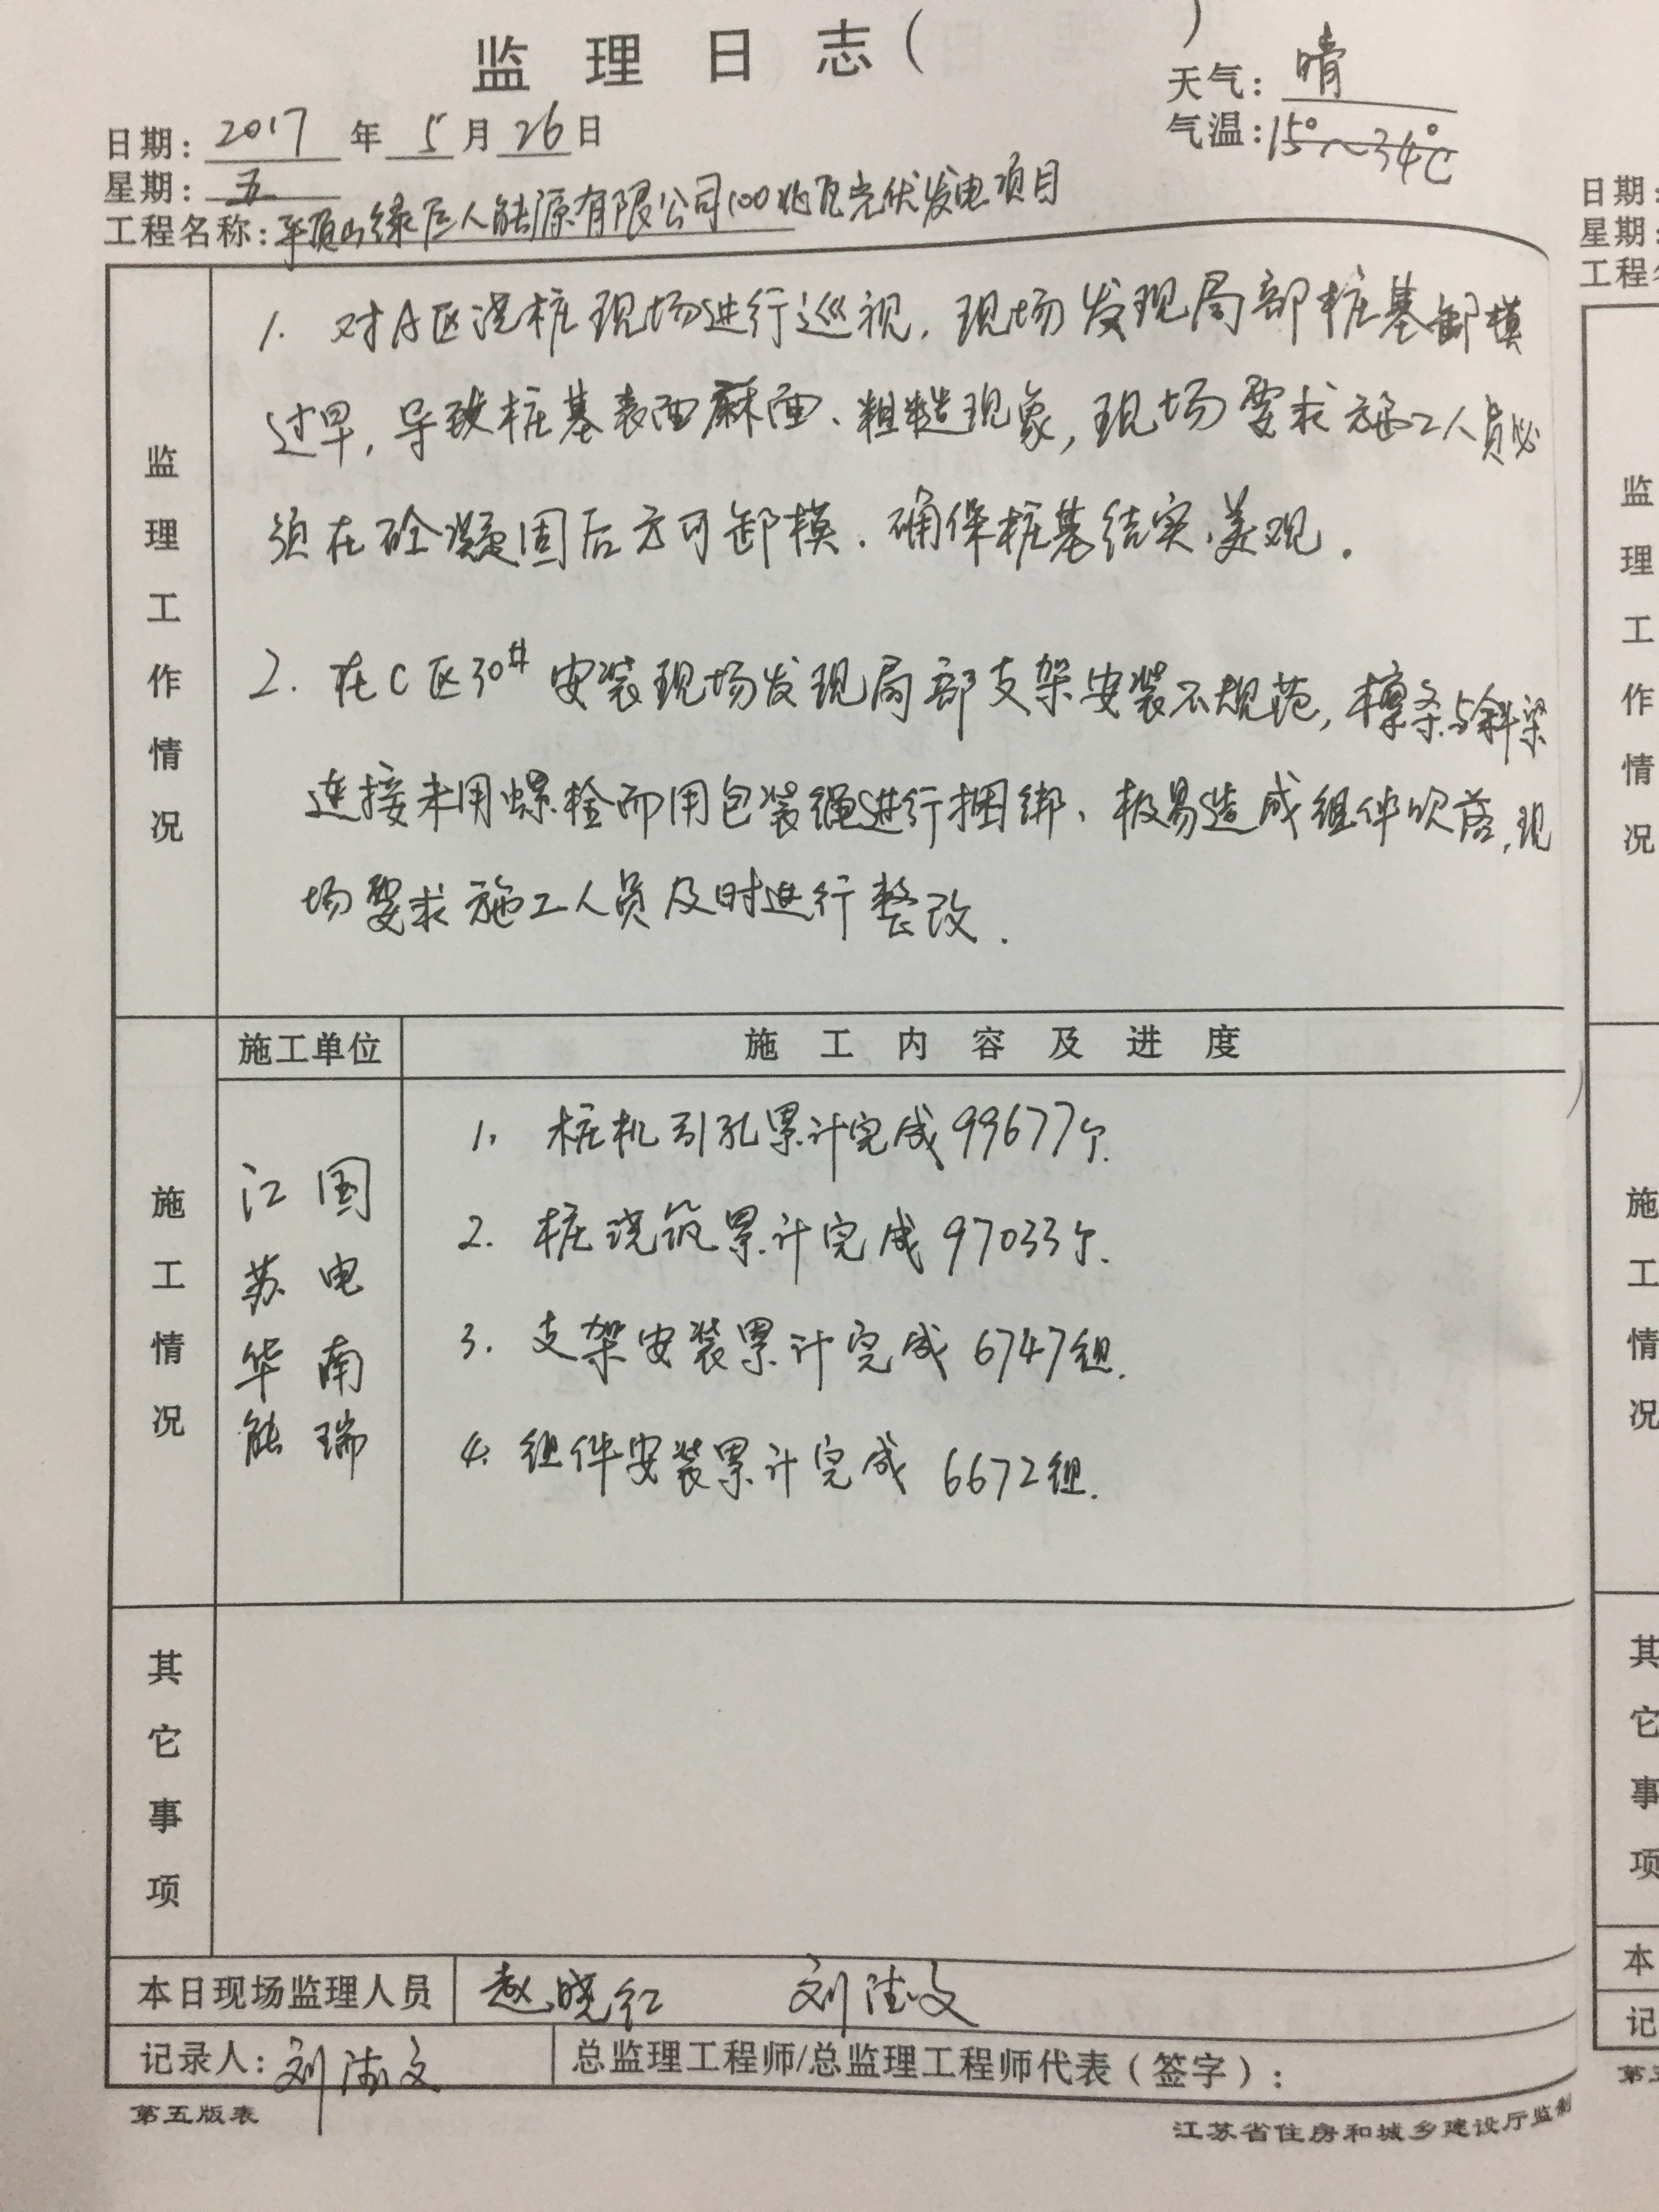 监理日志（ ）
天气：晴
气温：15°～34℃
日期：2017年5月26日
星期：五
工程名称：平顶山绿巨人能源有限公司100兆瓦光伏发电项目
监理工作情况
1. 对A区浇桩现场进行巡视，现场发现局部桩基卸模
过早，导致桩基表面麻面、粗糙现象，现场要求施工人员必
须在砼凝固后方可卸模．确保桩基结实、美观．
2. 在C区30# 安装现场发现局部支架安装不规范，檩条与斜梁
连接未用螺栓而用包装绳进行捆绑、极易造成组件吹落，现
场要求施工人员及时进行整改．
施工情况
施工单位 施工内容及进度
国电南瑞
江苏华能
1. 桩机引孔累计完成99677个．
2. 桩浇筑累计完成97033个．
3. 支架安装累计完成6747组．
4. 组件安装累计完成6672组．
其它事项
本日现场监理人员 赵晓红 刘
记录人：刘 总监理工程师/总监理工程师代表（签字）：
第五版表
江苏省住房和城乡建设厅监制
日期：
星期：
工程
监理工作情况
施工情况
其它事项
本
记
第